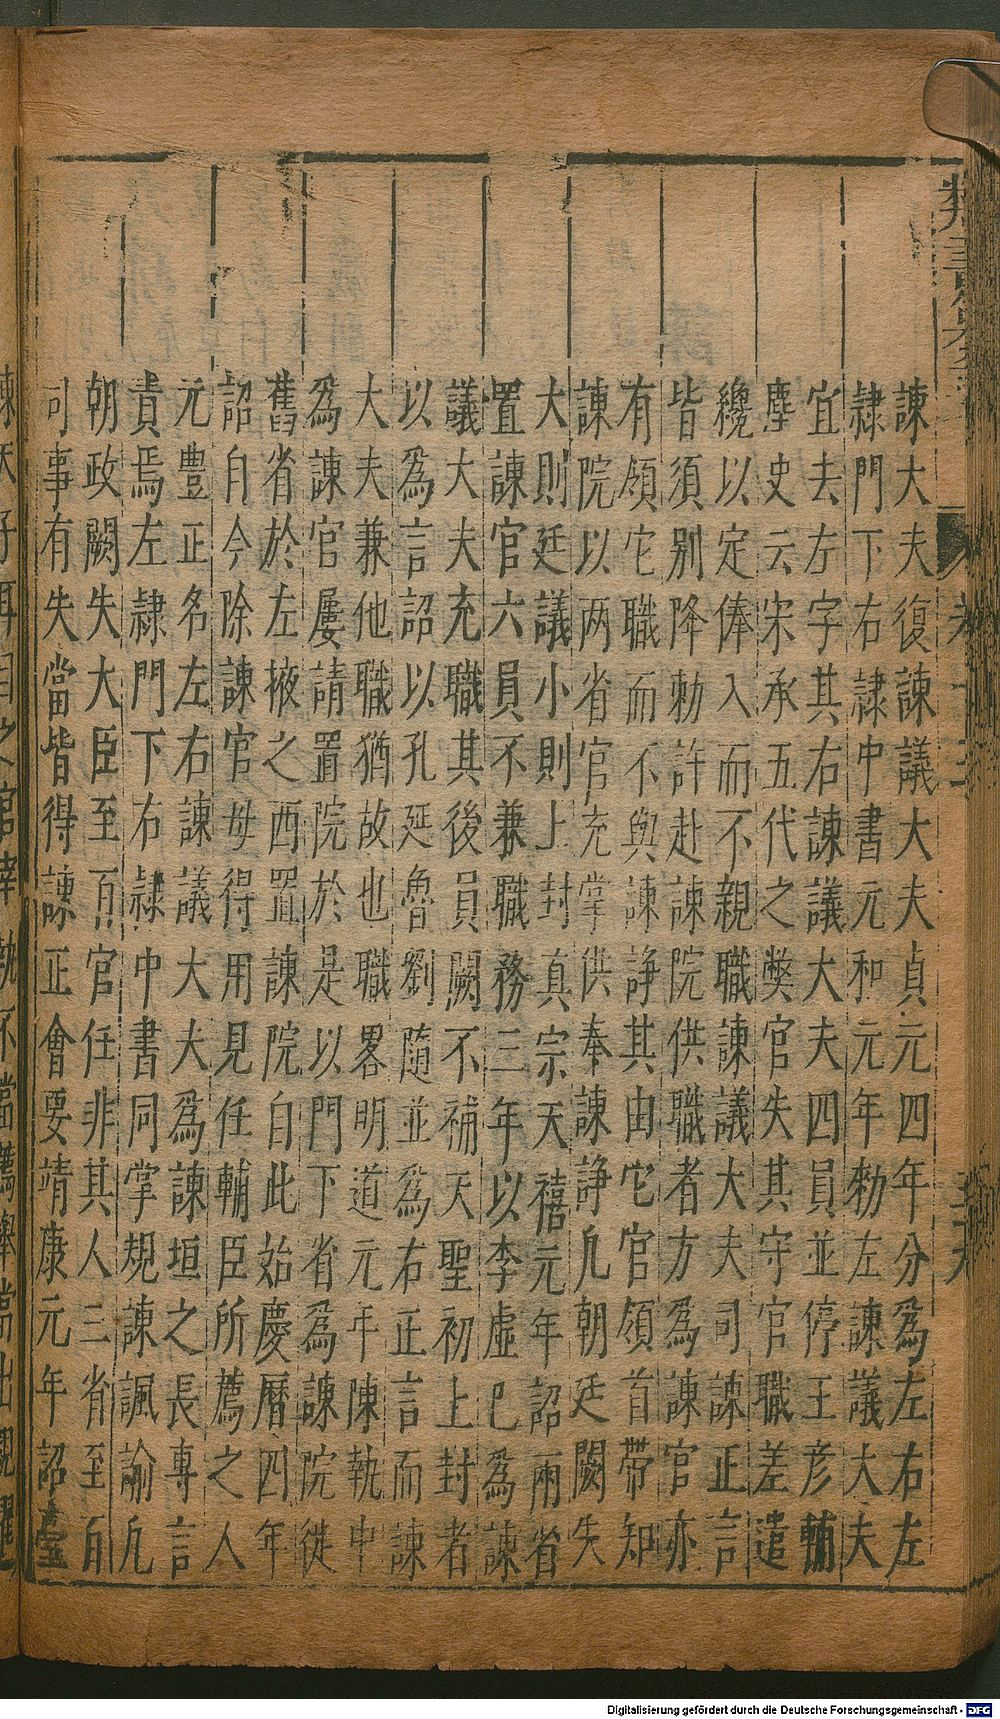 諫大夫復諫議大夫貞元四年分為左右左
隷門下右隷中書元和元年勑左諫議大夫
宜去左字其右諫議大夫四員並停王彦輔
塵史云宋承五代之弊官失其守官職差遣
纔以定俸入而不親職諫議大夫司諫正言
皆須别降勑許赴諫院供職者方為諫官亦
有領它職而不與諫諍其由它官領首帶知
諫院以两省官充掌供奉諫諍凢朝廷闕失
大則廷議小則上封真宗天禧元年詔兩省
置諫官六員不兼職務三年以李虛已為諫
議大夫充職其後員闕不補天聖初上封者
以為言詔以孔延魯劉隨並為右正言而諫
大夫兼他職猶故也職畧明道元年陳執中
為諫官屢請置院於是以門下省為諫院徙
舊省於左掖之西置諫院自此始慶曆四年
詔自今除諫官毋得用見任輔臣所薦之人
元豊正名左右諫議大夫為諫垣之長專言
責焉左隷門下右隷中書同掌規諫諷諭凢
朝政闕失大臣至百官任非其人三省至百
司事有失當皆得諫正會要靖康元年詔臺
諫天子耳目之官宰執不當薦舉當出親擢
Digitalisierung gefördert durch die Deutsche Forschungsgemeinschaft - DFG